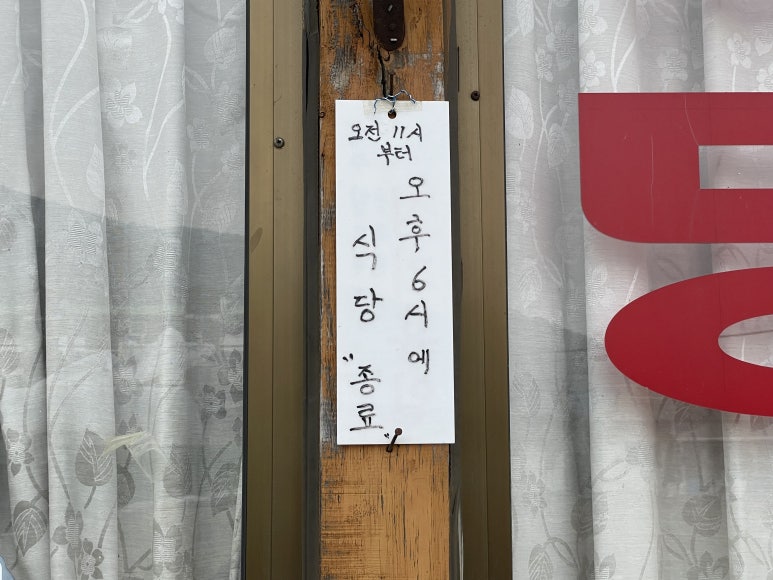 오전 11시
부터
오후 6시에
식당
"종료"